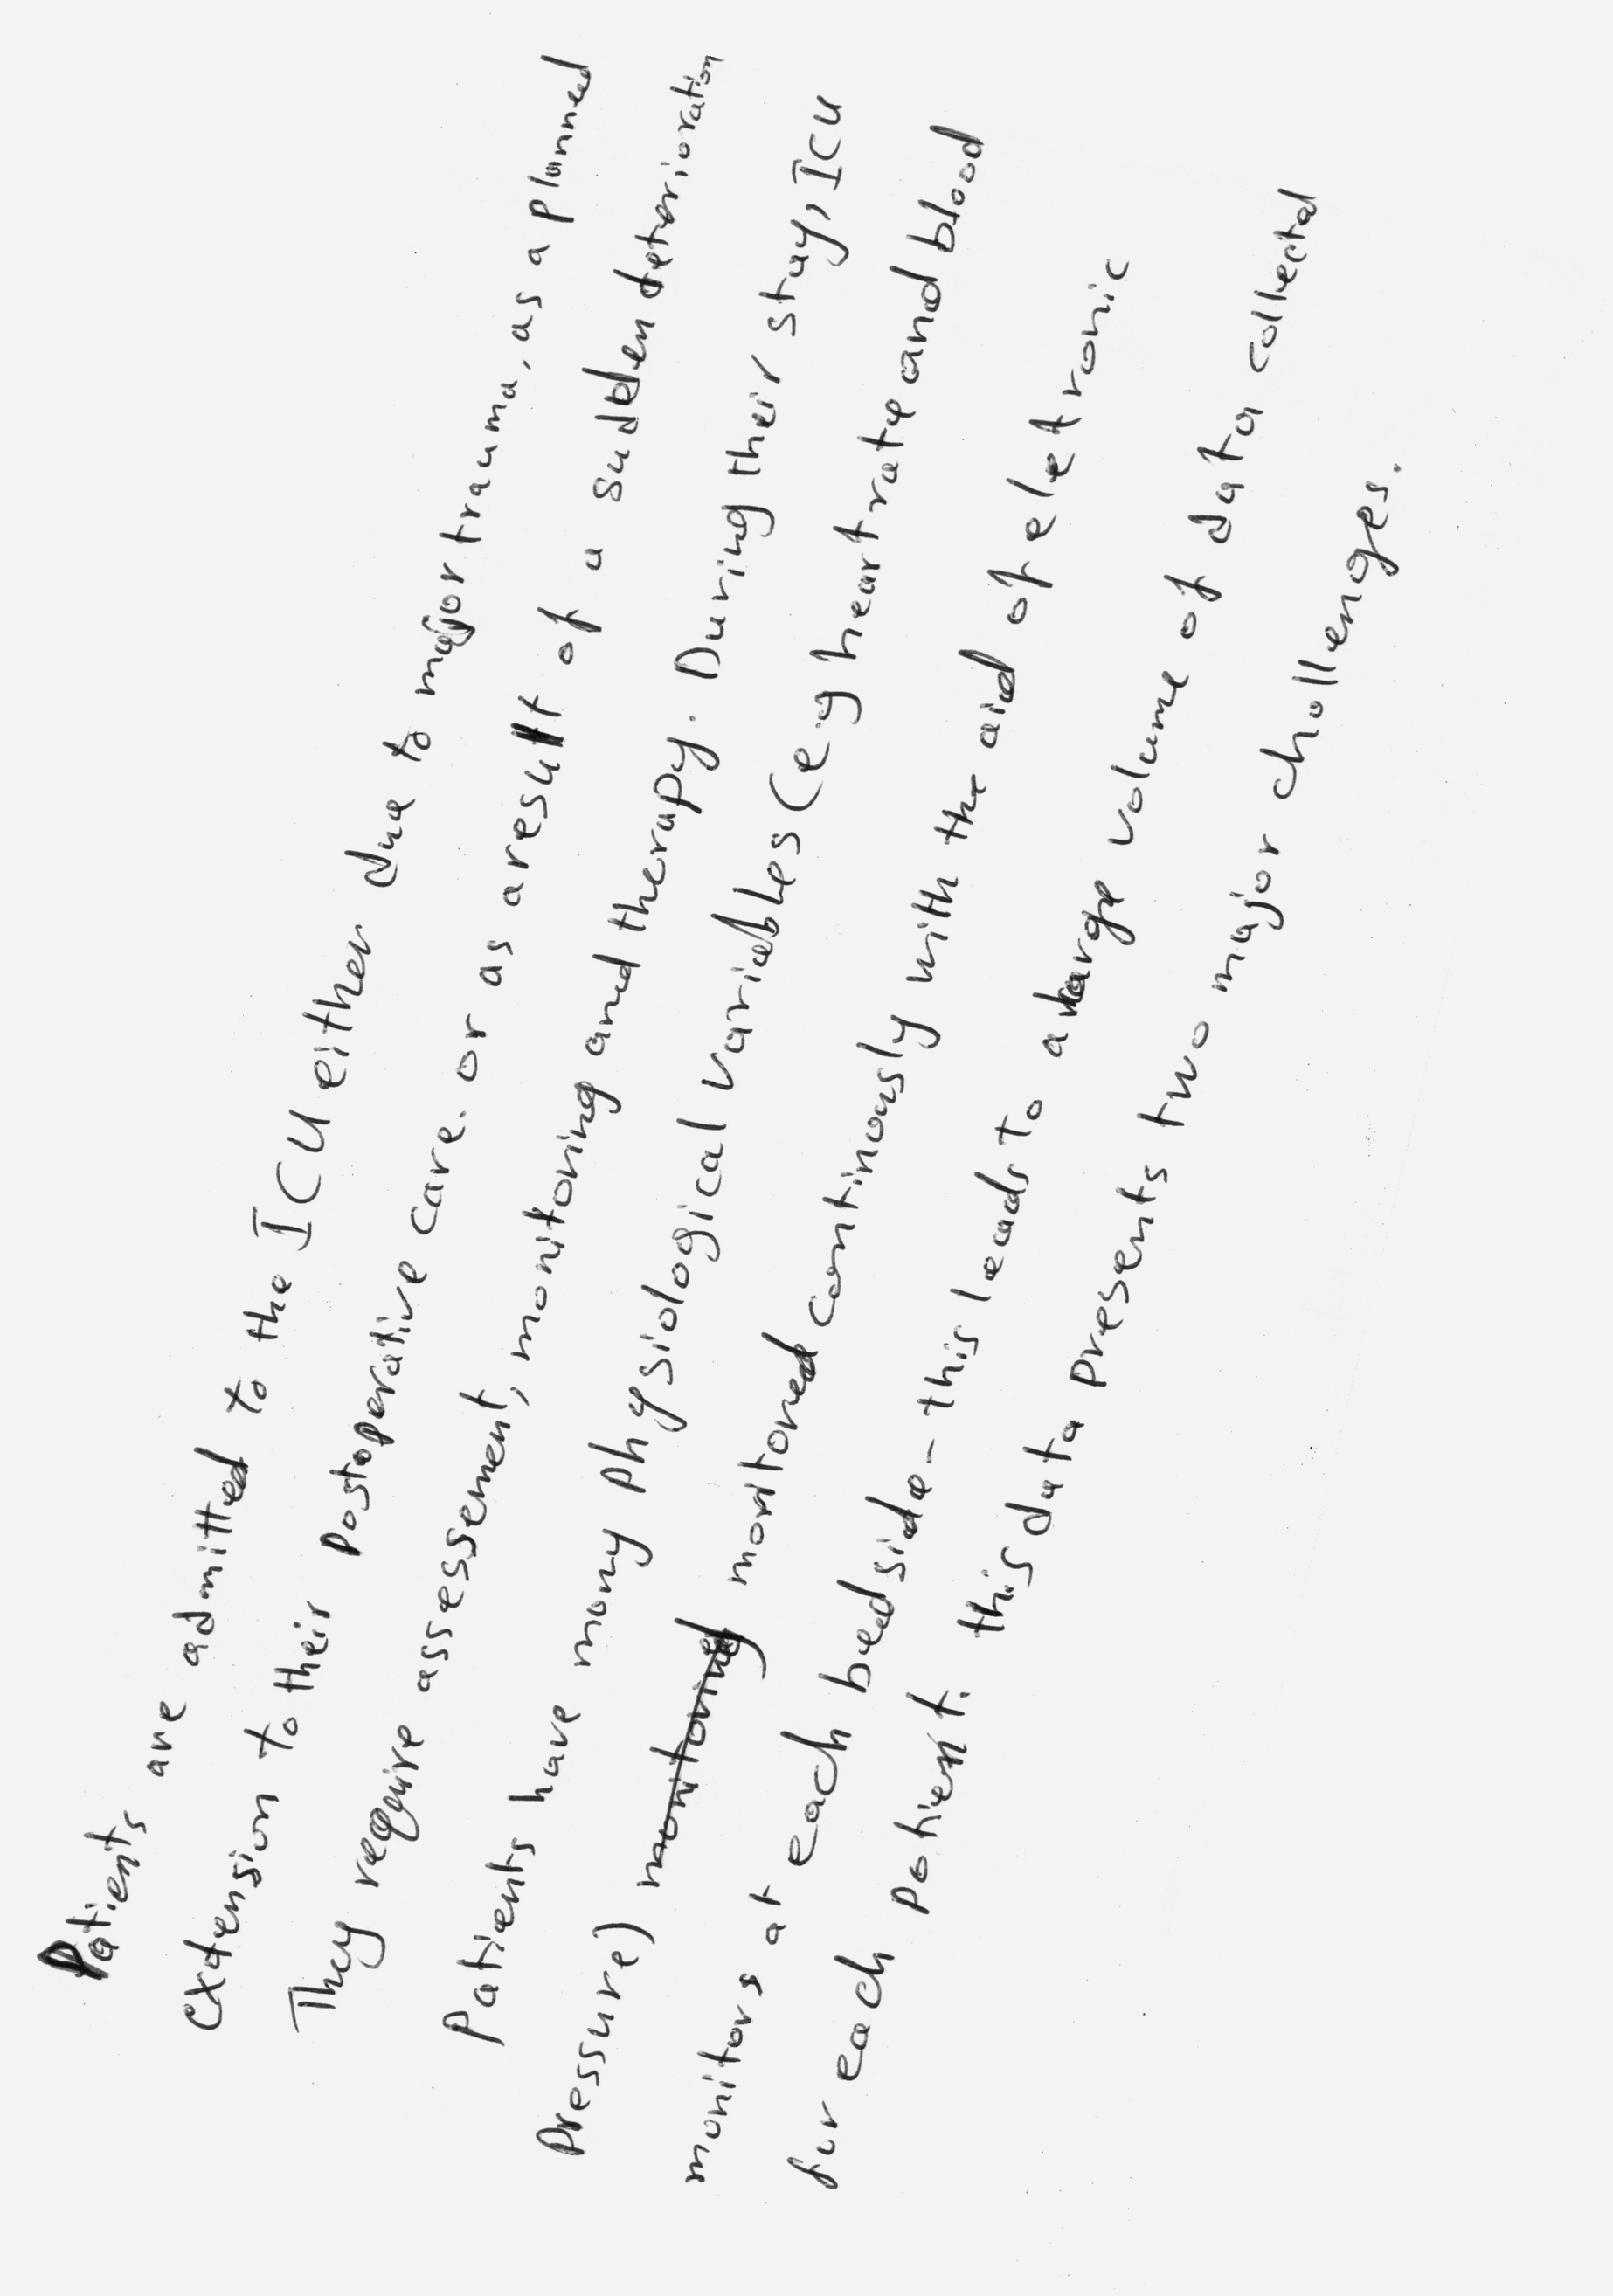 Patients are admitted to the ICU either due to major trauma, as a planned
extension to their postoperative care. or as a result of a sudden deterioration
They require assessement, monitoring and therapy. During their stay, ICU
patients have many physiological variables (e.g heart rate and blood
pressure) monitoring monitored continously with the aid of eletronic
monitors at each bedside - this leads to a large volume of data collected
for each patient. this data presents two major challenges.